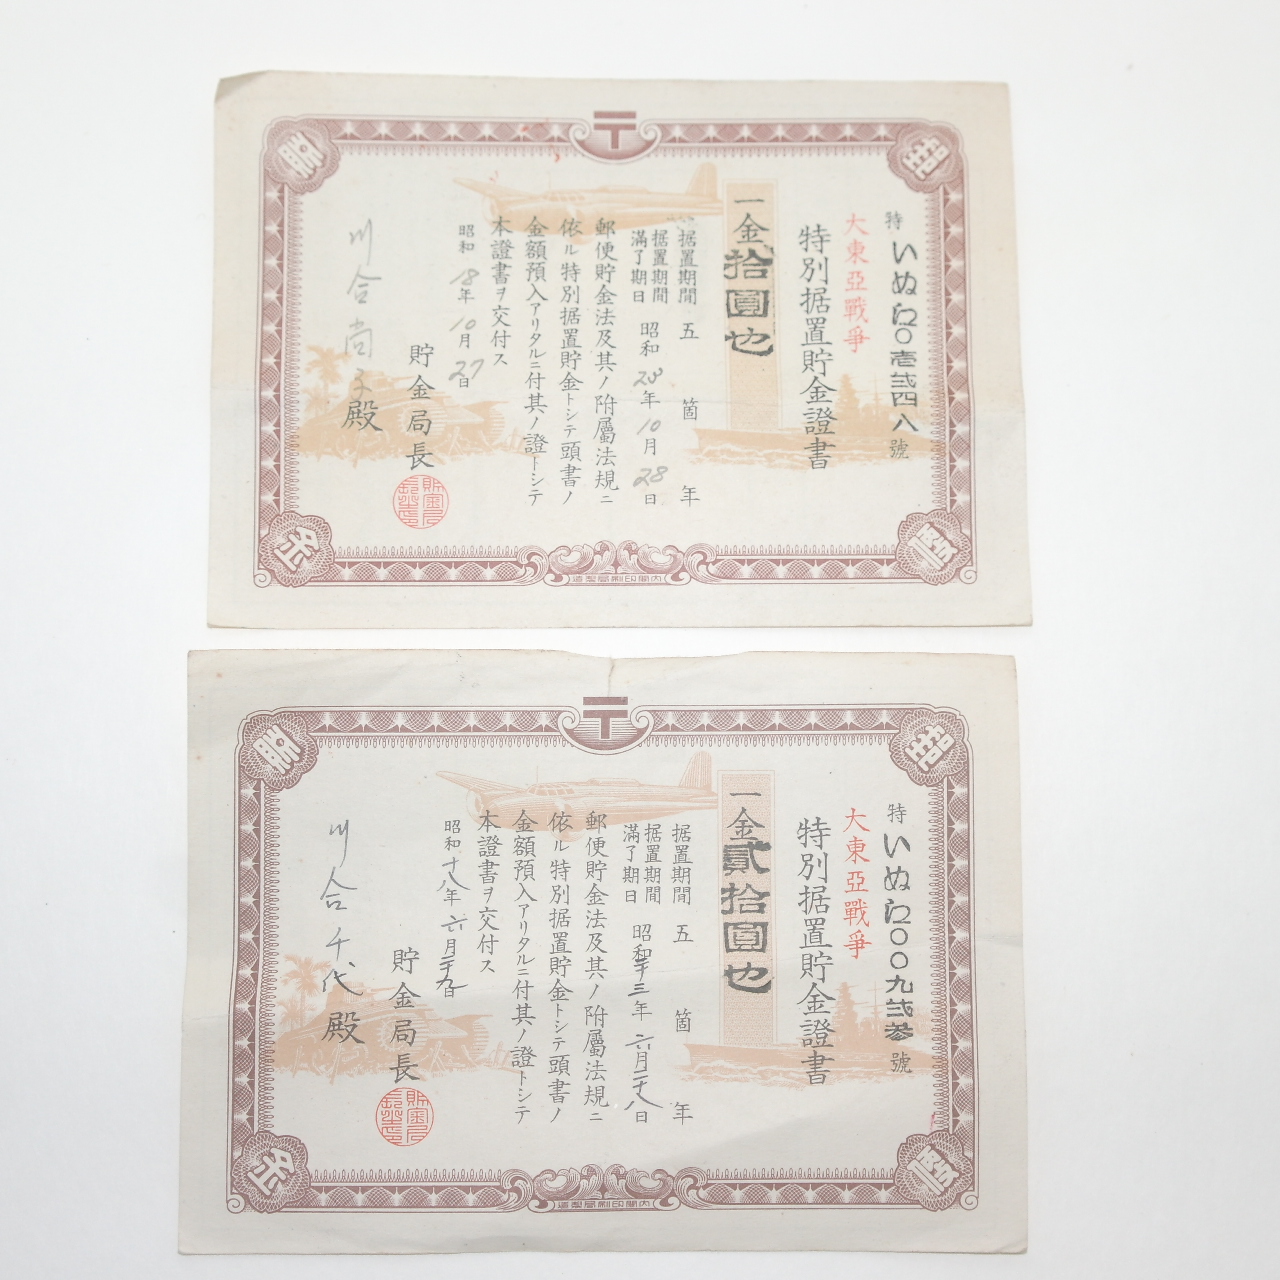 〒
郵
便
貯
金
特いぬに〇壱弐四八號
大東亞戰爭
特別据置貯金證書
一金拾圓也
据置期間 五箇年
据置期間
滿了期日 昭和 23年10月28日
郵便貯金法及其ノ附屬法規ニ
依ル特別据置貯金トシテ頭書ノ
金額預入アリタルニ付其ノ證トシテ
本證書ヲ交付ス
昭和18年10月27日
貯金局長
川合尚子殿
内閣印刷局製造
〒
郵
便
貯
金
特いぬに〇〇九弐参號
大東亞戰爭
特別据置貯金證書
一金貳拾圓也
据置期間 五箇年
据置期間
滿了期日 昭和廿三年六月二十八日
郵便貯金法及其ノ附屬法規ニ
依ル特別据置貯金トシテ頭書ノ
金額預入アリタルニ付其ノ證トシテ
本證書ヲ交付ス
昭和十八年六月廿九日
貯金局長
川合千代殿
内閣印刷局製造